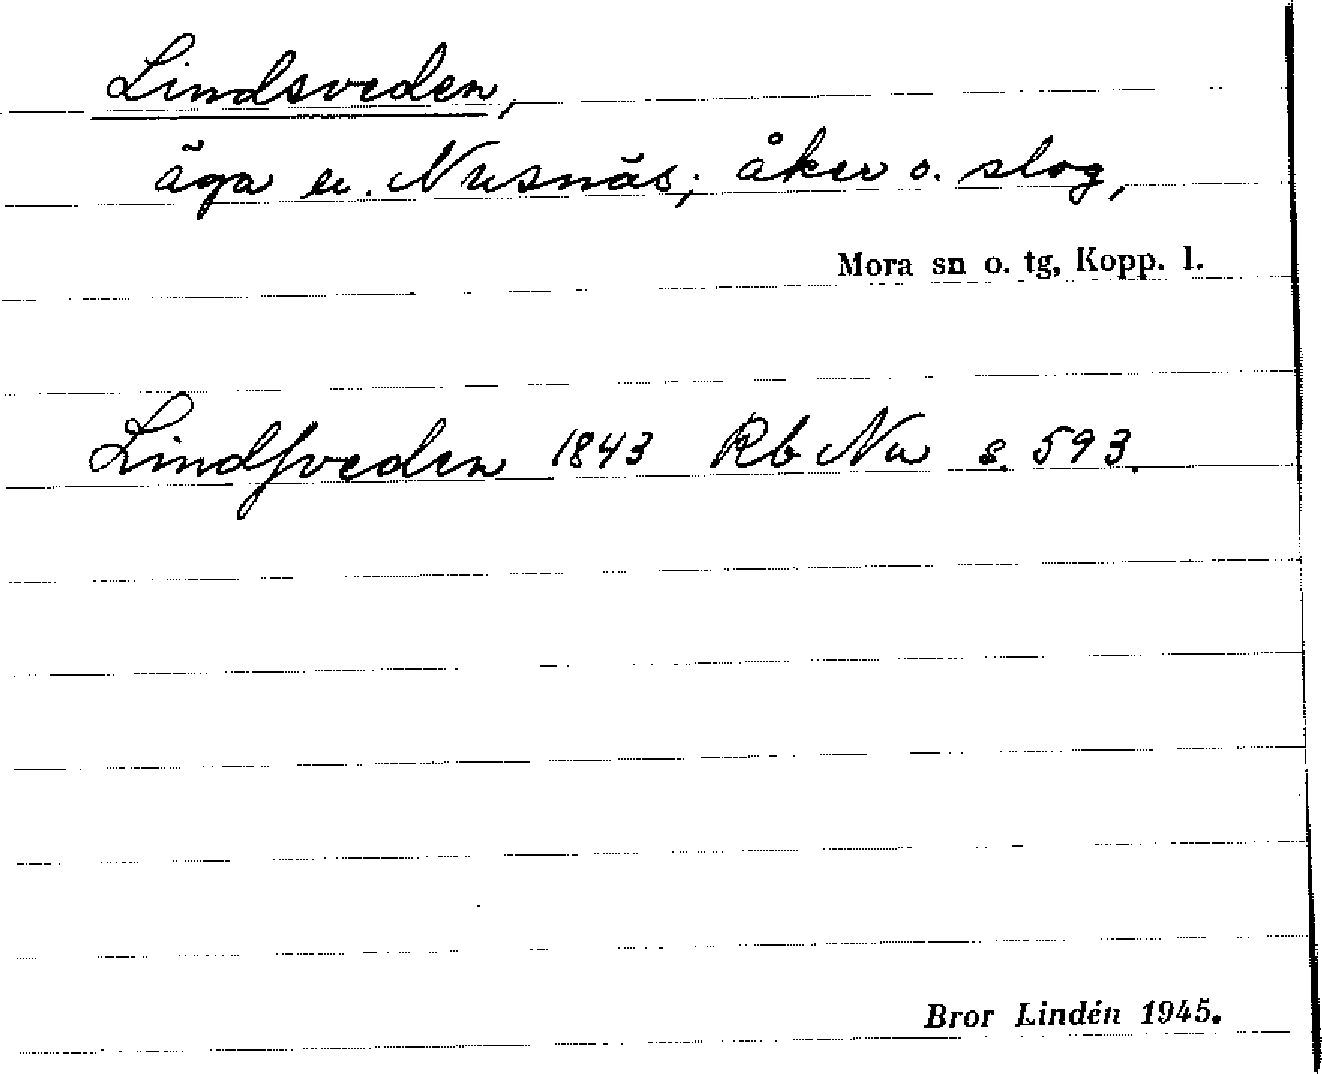 Lindsveden,
äga u. Nusnäs; åker o. slog,
Mora sn o. tg, Kopp. l.
Lindſveden 1843 Rb Nu s. 593.
Bror Lindén 1945.